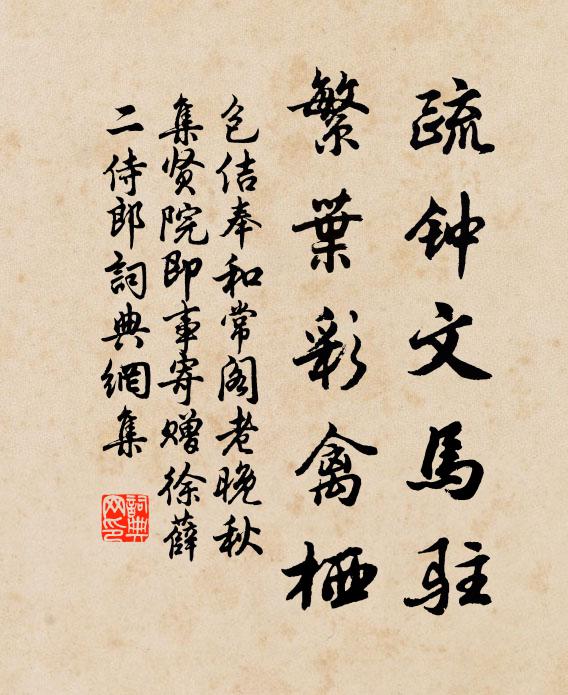 疏钟文馬驻
繁葉彩禽栖
包佶奉和常阁老晚秋
集贤院即事寄赠徐薛
二侍郎詞典網集
詞典
网印